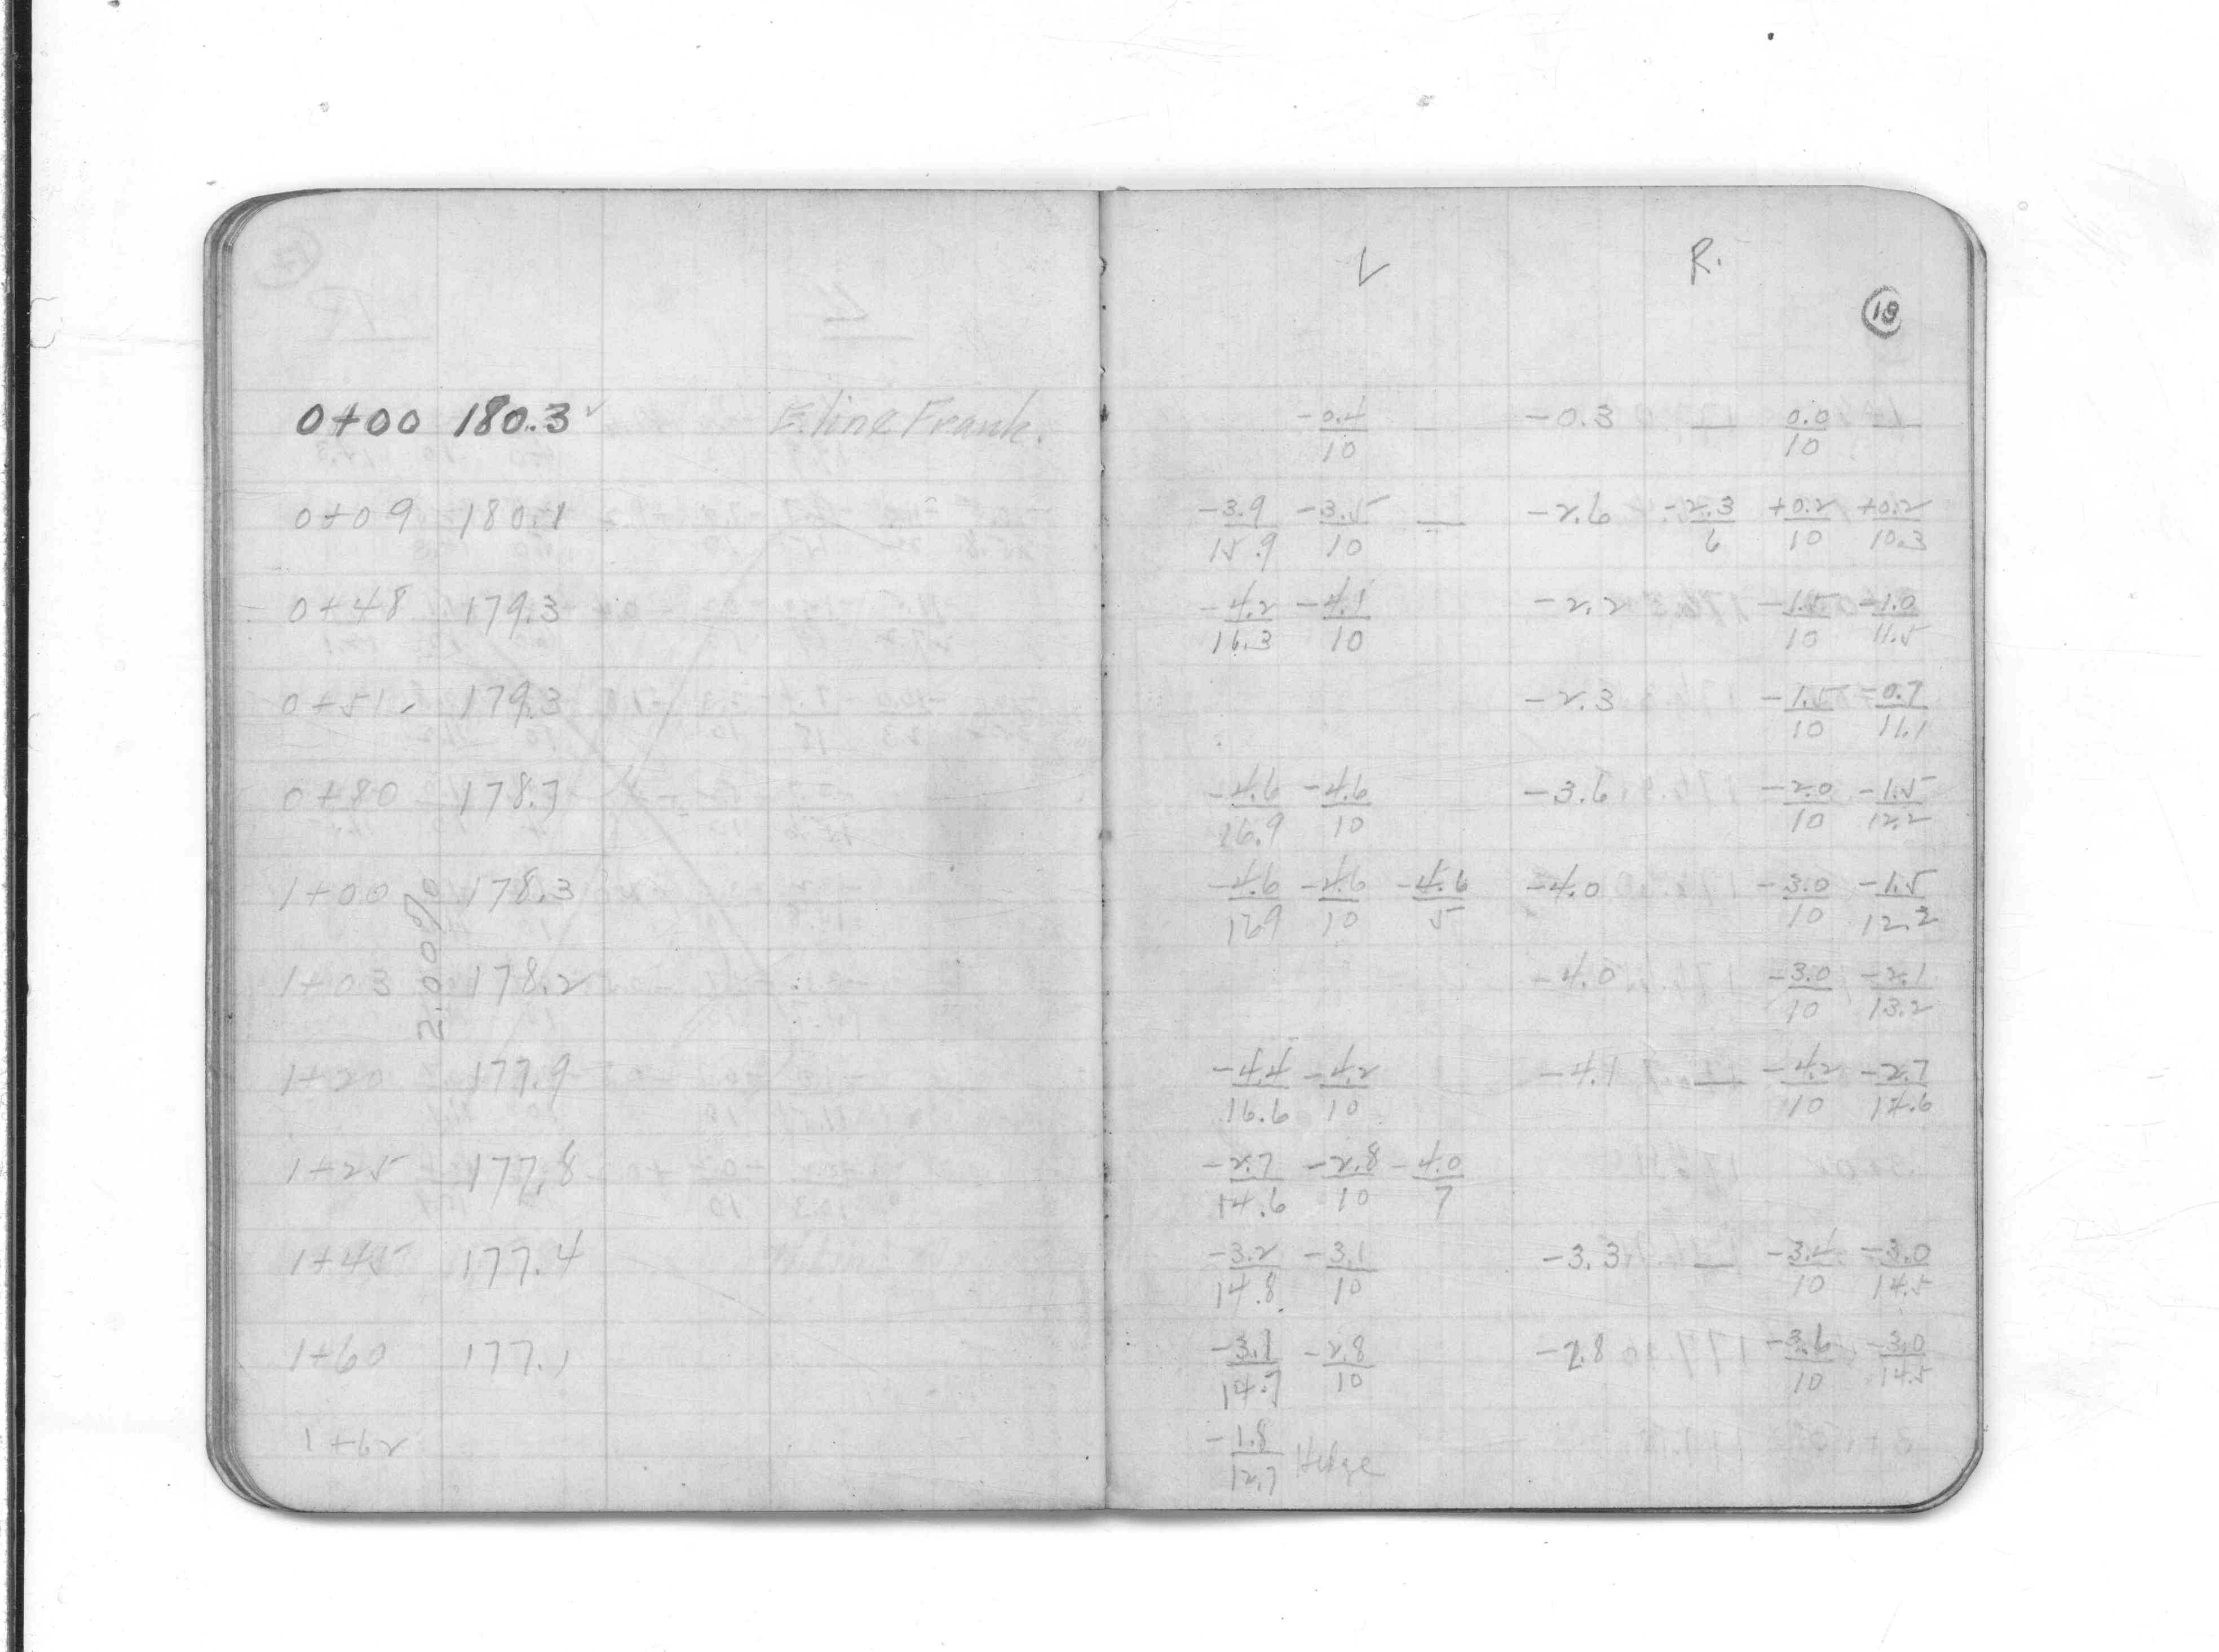 L R.
18
0+00 180.3 E. line Frank. -0.4/10 — -0.3 — 0.0/10 —
0+09 180.1 -3.9/15.9 -3.5/10 — -2.6 -2.3/6 +0.2/10 +0.2/10.3
0+48 179.3 -4.2/16.3 -4.1/10 -2.2 -1.5/10 -1.0/11.5
0+51 179.3 -2.3 -1.5/10 -0.7/11.1
0+80 178.7 -4.6/16.9 -4.6/10 -3.6 -2.0/10 -1.5/12.2
1+00 178.3 -4.6/16.9 -4.6/10 -4.6/5 -4.0 -3.0/10 -1.5/12.2
2.00%
1+03 178.2 -4.0 -3.0/10 -2.1/13.2
1+20 177.9 -4.4/16.6 -4.2/10 -4.1 — -4.2/10 -2.7/14.6
1+25 177.8 -2.7/14.6 -2.8/10 -4.0/7
1+45 177.4 -3.2/14.8 -3.1/10 -3.3 — -3.4/10 -3.0/14.5
1+60 177.1 -3.1/14.7 -2.8/10 -2.8 -3.6/10 -3.0/14.5
1+62 -1.8/12.7 Hedge